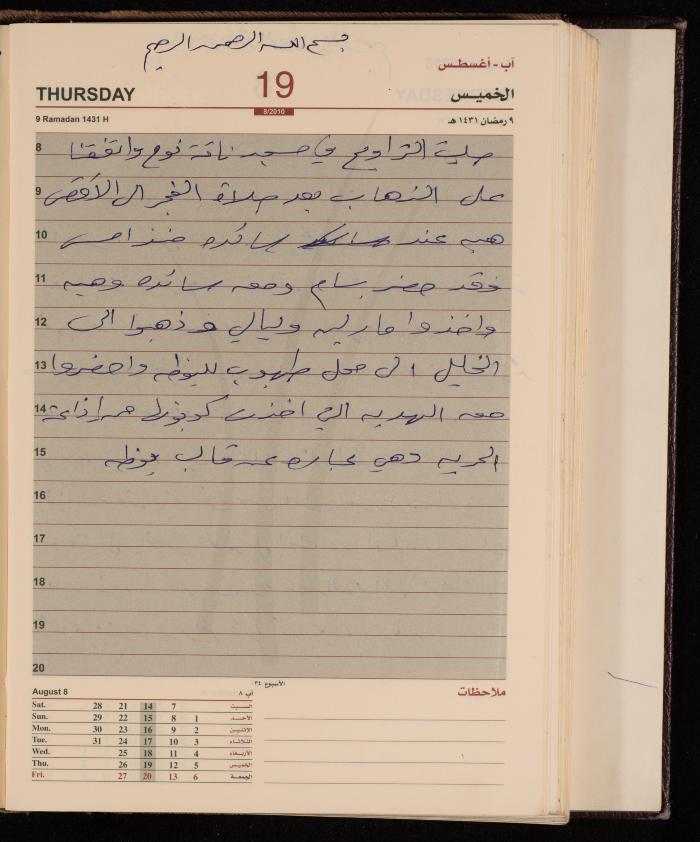 بسم الله الرحمن الرحيم
آب - أغسطس
THURSDAY 19 الخميس
8/2010
9 Ramadan 1431 H ٩ رمضان ١٤٣١ هـ
8 صليت التراويح في مسجد ناقة نوح واتفقنا
9 على الذهاب بعد صلاة الفجر الى الأقصى
10 هبه عند سائده منذ امس
11 فقد حضر بسام ومعه سائده وهبه
12 واخذوا ماريه وليالي وذهبوا الى
13 الخليل الى محل طهبوب للبوظه واحضروا
14 معه الهديه التي اخذت كوبونها من اذاعة
15 الحريه وهي عباره عن قالب بوظه
16
17
18
19
20
August 8 آب ٨ الأسبوع ٣٤ ملاحظات
Sat. 28 21 14 7 السبت
Sun. 29 22 15 8 1 الأحد
Mon. 30 23 16 9 2 الإثنين
Tue. 31 24 17 10 3 الثلاثاء
Wed. 25 18 11 4 الأربعاء
Thu. 26 19 12 5 الخميس
Fri. 27 20 13 6 الجمعة